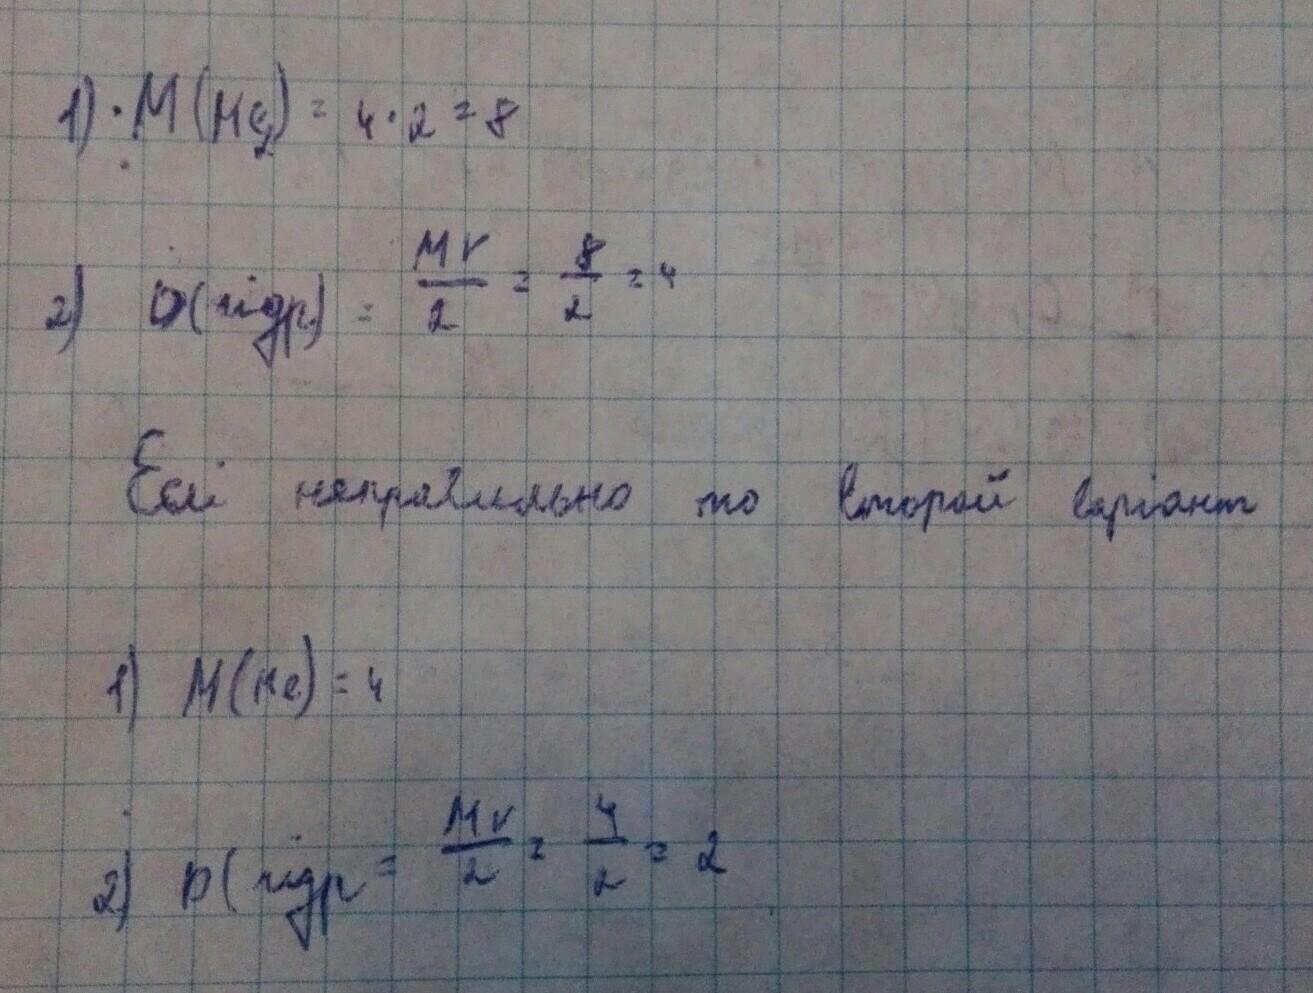 1) · M(He₂) = 4 · 2 = 8
2) D(гідр) = Mr/2 = 8/2 = 4
Еслі неправильно то второй варіант
1) M(He) = 4
2) D(гідр = Mr/2 = 4/2 = 2